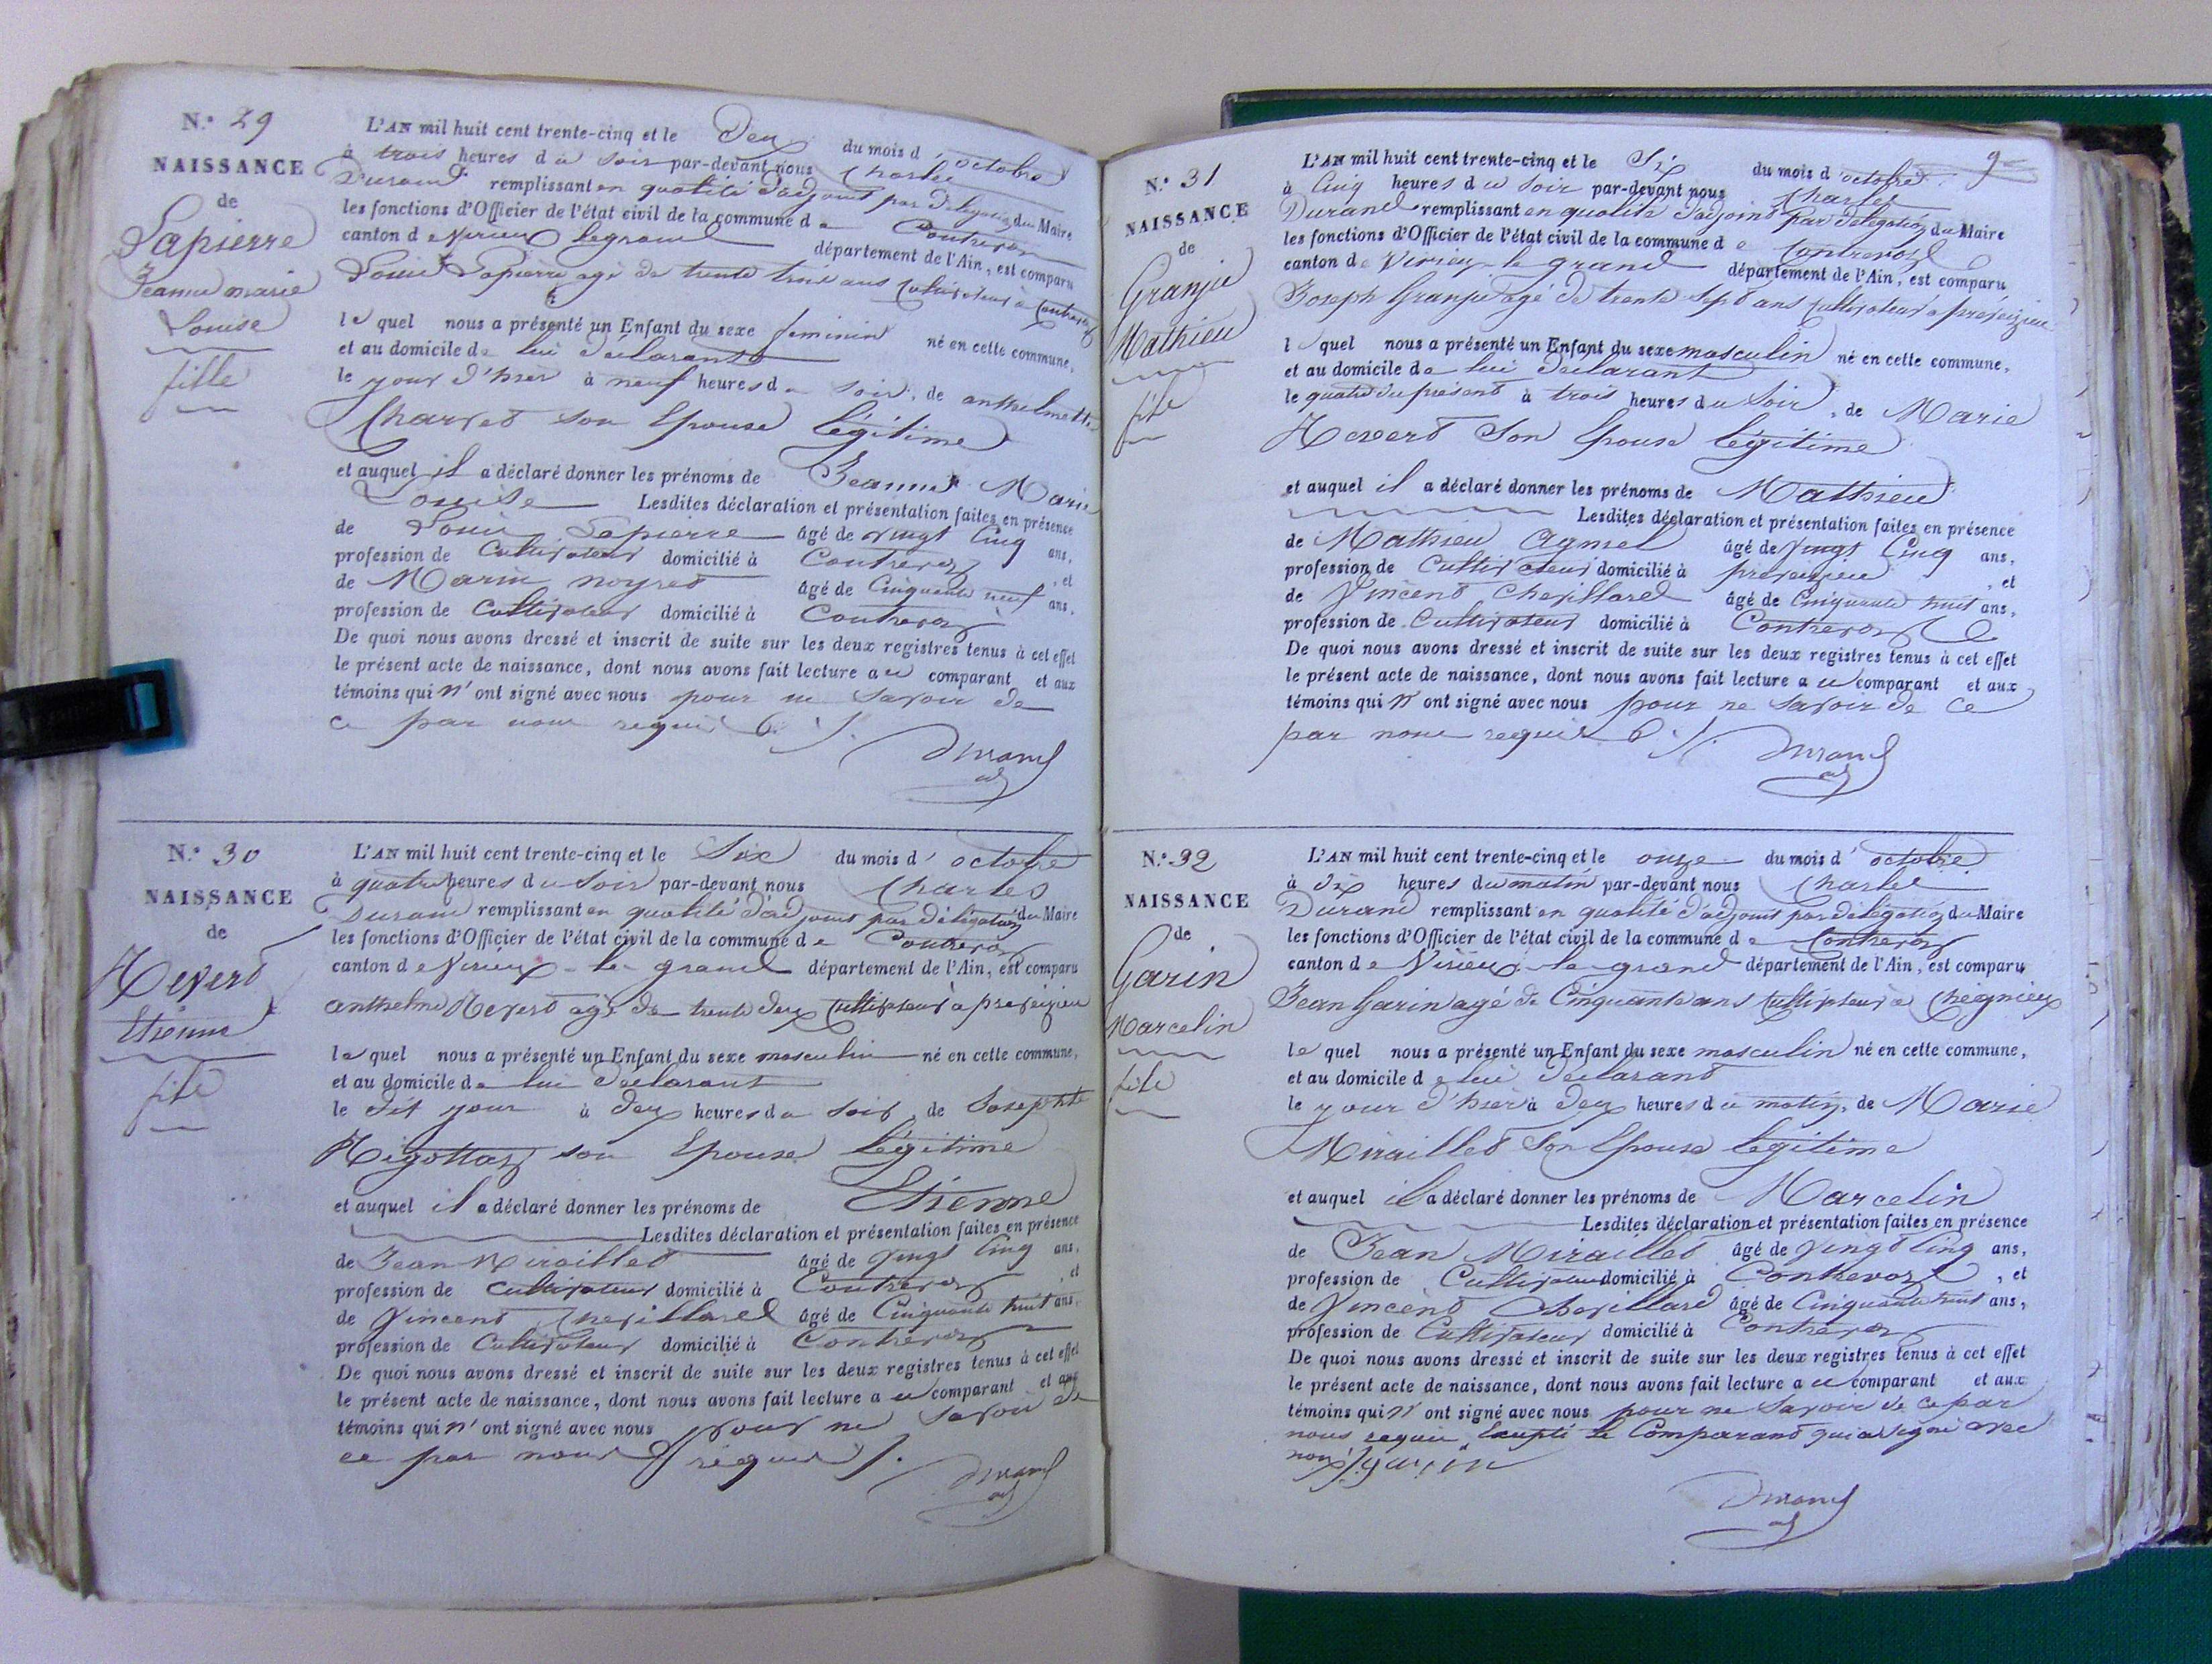 N.° 29
NAISSANCE
de
Lapierre
Jeanne marie
Louise
fille
L'AN mil huit cent trente-cinq et le Deux du mois d' octobre
à trois heures d u soir par-devant nous Charles
Durand remplissant en qualité d'adjoint par délégation du Maire
les fonctions d'Officier de l'état civil de la commune d e Contrevoz
canton d e Virieux legrand département de l'Ain, est comparu
Louis Lapierre agé de trente trois ans cultivateur à Contrevoz
le quel nous a présenté un Enfant du sexe feminin né en cette commune,
et au domicile de lui déclarant
le jour d'hier à neuf heures d u soir, de anthelmette
Charvet son Epouse légitime
et auquel il a déclaré donner les prénoms de Jeanne Marie
Louise Lesdites déclaration et présentation faites en présence
de Louis Lapierre âgé de vingt cinq ans,
profession de Cultivateur domicilié à Contrevoz , et
de Marin noyret âgé de Cinquante neuf ans,
profession de Cultivateur domicilié à Contrevoz
De quoi nous avons dressé et inscrit de suite sur les deux registres tenus à cet effet
le présent acte de naissance, dont nous avons fait lecture au comparant et aux
témoins qui n' ont signé avec nous pour ne savoir de
ce par nous requis ./.
Durand
adj
N.° 30
NAISSANCE
de
Revert
Etienne
fils
L'AN mil huit cent trente-cinq et le Six du mois d' octobre
à quatre heures d u soir par-devant nous Charles
Durand remplissant en qualité d'adjoint par délégation du Maire
les fonctions d'Officier de l'état civil de la commune d e Contrevoz
canton d e Virieux - le - grand département de l'Ain, est comparu
anthelme Revert agé de trente deux cultivateur à preveizieu
le quel nous a présenté un Enfant du sexe masculin né en cette commune,
et au domicile de lui déclarant
le dit jour à deux heures du soir, de Josephte
Rigottaz son Epouse légitime
et auquel il a déclaré donner les prénoms de Etienne
Lesdites déclaration et présentation faites en présence
de Jean Miraillet âgé de vingt cinq ans,
profession de cultivateur domicilié à Contrevoz , et
de Vincent Chevillard âgé de Cinquante huit ans,
profession de Cultivateur domicilié à Contrevoz
De quoi nous avons dressé et inscrit de suite sur les deux registres tenus à cet effet
le présent acte de naissance, dont nous avons fait lecture au comparant et aux
témoins qui n' ont signé avec nous pour ne savoir de
ce par nous requis ./.
Durand
adj
9
N.° 31
NAISSANCE
de
Granju
Mathieu
fils
L'AN mil huit cent trente-cinq et le Six du mois d' octobre
à Cinq heures d u soir par-devant nous Charles
Durand remplissant en qualité d'adjoint par délégation du Maire
les fonctions d'Officier de l'état civil de la commune d e Contrevoz
canton d e Virieu - le grand département de l'Ain, est comparu
Joseph Granju agé de trente sept ans cultivateur à preveizieu
le quel nous a présenté un Enfant du sexe masculin né en cette commune,
et au domicile de lui déclarant
le quatre du présent à trois heures du soir, de Marie
Revert son Epouse légitime
et auquel il a déclaré donner les prénoms de Mathieu
Lesdites déclaration et présentation faites en présence
de Mathieu agniel âgé de Vingt Cinq ans,
profession de Cultivateur domicilié à preveizieu , et
de Vincent Chevillard âgé de Cinquante huit ans,
profession de Cultivateur domicilié à Contrevoz
De quoi nous avons dressé et inscrit de suite sur les deux registres tenus à cet effet
le présent acte de naissance, dont nous avons fait lecture au comparant et aux
témoins qui n' ont signé avec nous pour ne savoir de ce
par nous requis ./.
Durand
adj
N.° 32
NAISSANCE
de
Garin
Marcelin
fils
L'AN mil huit cent trente-cinq et le onze du mois d' octobre
à dix heures du matin par-devant nous Charles
Durand remplissant en qualité d'adjoint par délégation du Maire
les fonctions d'Officier de l'état civil de la commune d e Contrevoz
canton d e Virieux - le - grand département de l'Ain, est comparu
Jean Garin agé de Cinquante ans cultivateur à Cheignieux
le quel nous a présenté un Enfant du sexe masculin né en cette commune,
et au domicile d e lui déclarant
le jour d'hier à deux heures du matin, de Marie
Miraillet son Epouse légitime
et auquel il a déclaré donner les prénoms de Marcelin
Lesdites déclaration et présentation faites en présence
de Jean Miraillet âgé de Vingt Cinq ans,
profession de Cultivateur domicilié à Contrevoz , et
de Vincent Chevillard âgé de Cinquante huit ans,
profession de Cultivateur domicilié à Contrevoz
De quoi nous avons dressé et inscrit de suite sur les deux registres tenus à cet effet
le présent acte de naissance, dont nous avons fait lecture au comparant et aux
témoins qui n' ont signé avec nous pour ne savoir de ce par
nous requis Excepté le Comparant qui a signé avec
nous ./. garin
Durand
adj